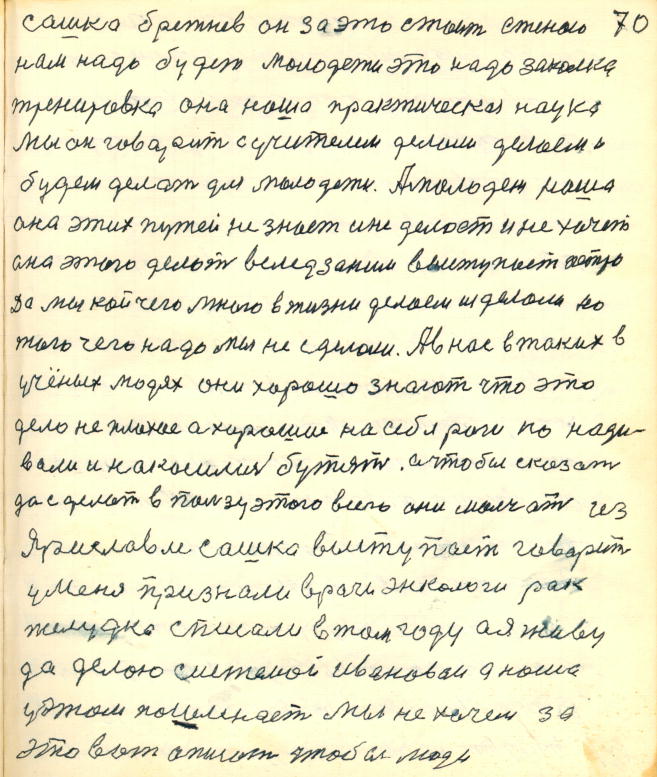 сашка бретнев он за это стоит стеною 70
нам надо будет молодежи это надо закалка
тренировка она наша практическая наука
мы он говарит сучителем делали делаем и
будем делат для молодежи. А молодеж наша
она этих путей не знает и не делает и не хочет
она этого делат вслед за ним выступает
Да мы кой чего много в жизни делаем и делали но
того чего надо мы не сделали. А в нас в таких в
учёных людях они хорошо знают что это
дело не плохое а хорошие на себя роги по нади-
вали и накасилия бутят. а чтобы сказат
да сделат в ползу этого всего они молчат из
Ярославля сашка выступает говарит
у меня признали врачи энкологи рак
желудка списали в том году а я живу
да делаю системой иванован а наша
у этом почелнает мы не хочем за
это вот описат чтобы люди